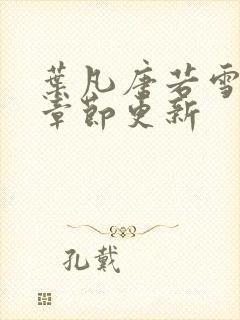 葉凡唐若雪
章節更新
孔戴